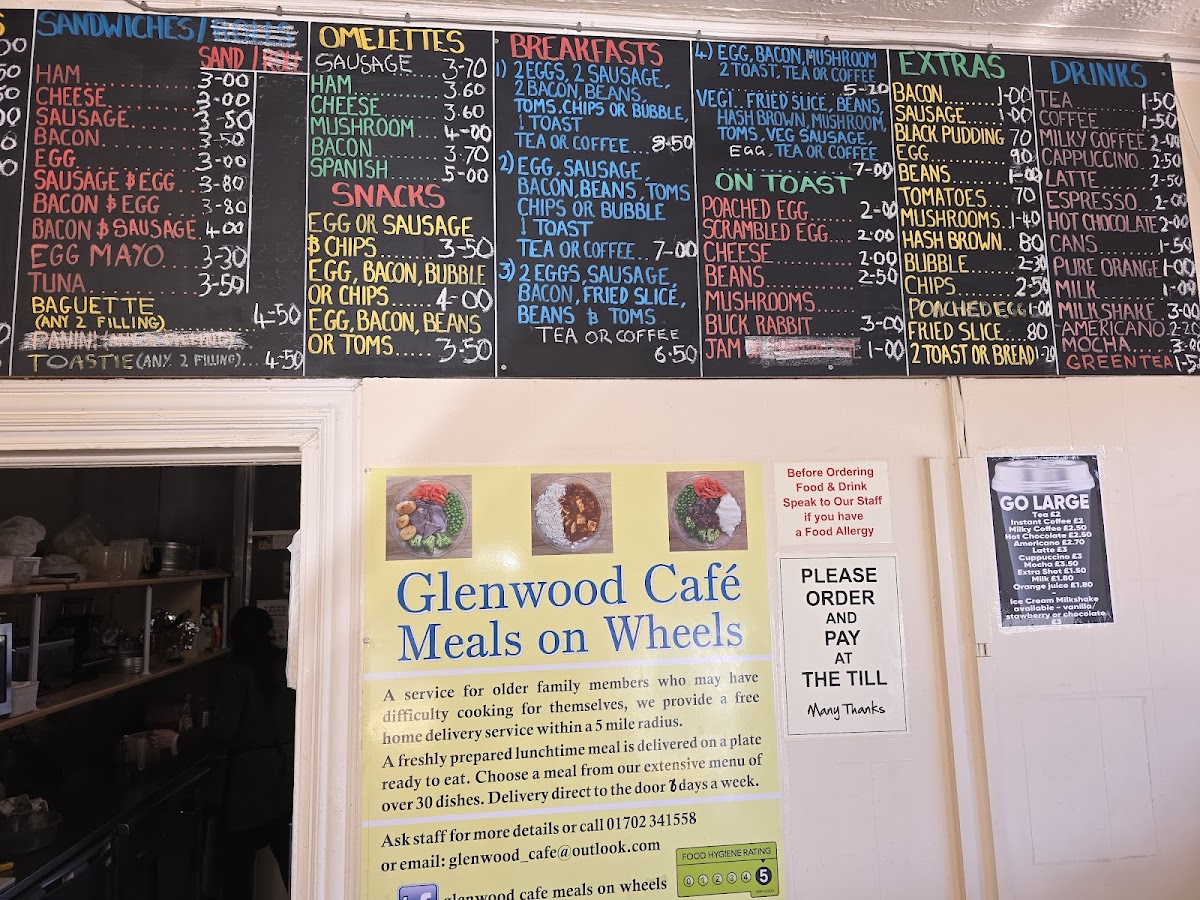 SANDWICHES/
SAND /
HAM........3-00
CHEESE........3-00
SAUSAGE........3-50
BACON........3-50
EGG........3-00
SAUSAGE & EGG...3-80
BACON & EGG....3-80
BACON & SAUSAGE.4-00
EGG MAYO....3-30
TUNA........3-50
BAGUETTE
(ANY 2 FILLING)........4-50
TOASTIE (ANY 2 FILLING)...4-50
OMELETTES
SAUSAGE....3-70
HAM........3.60
CHEESE........3.60
MUSHROOM...4-00
BACON........3-70
SPANISH........5-00
SNACKS
EGG OR SAUSAGE
& CHIPS........3-50
EGG, BACON, BUBBLE
OR CHIPS......4-00
EGG, BACON, BEANS
OR TOMS.....3-50
BREAKFASTS
1) 2 EGGS, 2 SAUSAGE,
2 BACON, BEANS,
TOMS, CHIPS OR BUBBLE,
1 TOAST
TEA OR COFFEE...8-50
2) EGG, SAUSAGE,
BACON, BEANS, TOMS
CHIPS OR BUBBLE
1 TOAST
TEA OR COFFEE..7-00
3) 2 EGGS, SAUSAGE,
BACON, FRIED SLICE,
BEANS & TOMS
TEA OR COFFEE
6.50
4.) EGG, BACON, MUSHROOM
2 TOAST, TEA OR COFFEE
VEGI.. FRIED SLICE, BEANS,
HASH BROWN, MUSHROOM,
TOMS. VEG SAUSAGE,
EGG, TEA OR COFFEE
7-00
ON TOAST
POACHED EGG......2-00
SCRAMBLED EGG...2.00
CHEESE........2.00
BEANS........2-50
MUSHROOMS
BUCK RABBIT....3-00
JAM 1-00
EXTRAS
BACON........1-00
SAUSAGE......1.00
BLACK PUDDING 70
EGG........90
BEANS......1-00
TOMATOES...70
MUSHROOMS.1-40
HASH BROWN..80
BUBBLE.......2-30
CHIPS........2-50
POACHED EGG 1-00
FRIED SLICE...80
2 TOAST OR BREAD 1-20
DRINKS
TEA........1-50
COFFEE......1-50
MILKY COFFEE 2-00
CAPPUCCINO..2-50
LATTE........2-50
ESPRESSO...2-00
HOT CHOCOLATE 2-00
CANS........1-50
PURE ORANGE 1-00
MILK........1-00
MILKSHAKE.3-00
AMERICANO.2-20
MOCHA......3-00
GREEN TEA 1-50
Glenwood Café
Meals on Wheels
A service for older family members who may have
difficulty cooking for themselves, we provide a free
home delivery service within a 5 mile radius.
A freshly prepared lunchtime meal is delivered on a plate
ready to eat. Choose a meal from our extensive menu of
over 30 dishes. Delivery direct to the door 7 days a week.
Ask staff for more details or call 01702 341558
or email: glenwood_cafe@outlook.com
glenwood cafe meals on wheels
FOOD HYGIENE RATING
0 1 2 3 4 5
VERY GOOD
Before Ordering
Food & Drink
Speak to Our Staff
if you have
a Food Allergy
PLEASE
ORDER
AND
PAY
AT
THE TILL
Many Thanks
GO LARGE
Tea £2
Instant Coffee £2
Milky Coffee £2.50
Hot Chocolate £2.50
Americano £2.70
Latte £3
Cuppuccino £3
Mocha £3.50
Extra Shot £1.50
Milk £1.80
Orange juice £1.80
Ice Cream Milkshake
available - vanilla/
stawberry or chocolate
£3